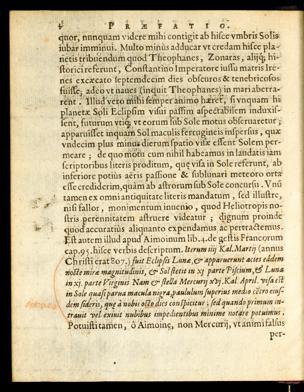 4 PRÆFATIO.
quor, nunquam videre mihi contigit ab hisce vmbris Solis
iubar imminui. Multo minus adducar vt credam hisce pla-
netis tribuendum quod Theophanes, Zonaras, alijq; hi-
storici referunt, Constantino Imperatore iussu matris Ire-
nes excæcato septemdecim dies obscuros & tenebricosos
fuisse, adeo vt naues (inquit Theophanes) in mari aberra-
rent. Illud veto mihi semper animo hæret, si vnquam hi
planetæ Soli Eclipsim visui passim aspectabilem induxis-
sent, futurum vtiq; vt eorum sub Sole motus obseruaretur;
apparuisset inquam Sol maculis ferrugineis inspersus, quæ
vndecim plus minus dierum spatio visæ essent Solem per-
meare; de quo motu cum nihil habeamus in laudatis iam
scriptoribus literis proditum, quę visa in Sole referunt, ab
inferiore potiùs aëris passione & sublunari meteoro orta
esse crediderim, quàm ab astrorum sub Sole concursu. Vnũ
tamen ex omni antiquitate literis mandatum, sed illustre,
nisi fallor, monimentum inuenio, quod Heliotropis no-
stris perennitatem astruere videatur; dignum proinde
quod accuratiùs aliquanto expendamus ac pertractemus.
Est autem illud apud Aimoinum lib. 4. de gestis Francorum
cap. 95. hisce verbis descriptum. Iterum iiij Kal. Martij (annus
Christi erat 807.) fuit Eclipsis Lunæ, & apparuerunt acies eâdem
nocte mira magnitudinis, & Sol stetit in xj parte Piscium, & Luna
in xj. parte Virginis Nam & stella Mercurij xvj. Kal. April. visa est
in Sole quasi parua macula nigra, paululum superius medio cẽtro eius-
dem sideris, quæ à nobis octo dies conspicitur; sed quando primum in-
trauit vel exiuit nubibus impedientibus minime notare potuimus.
Potuisti tamen, ô Aimoine, non Mercurij, vt animi falsus
per-